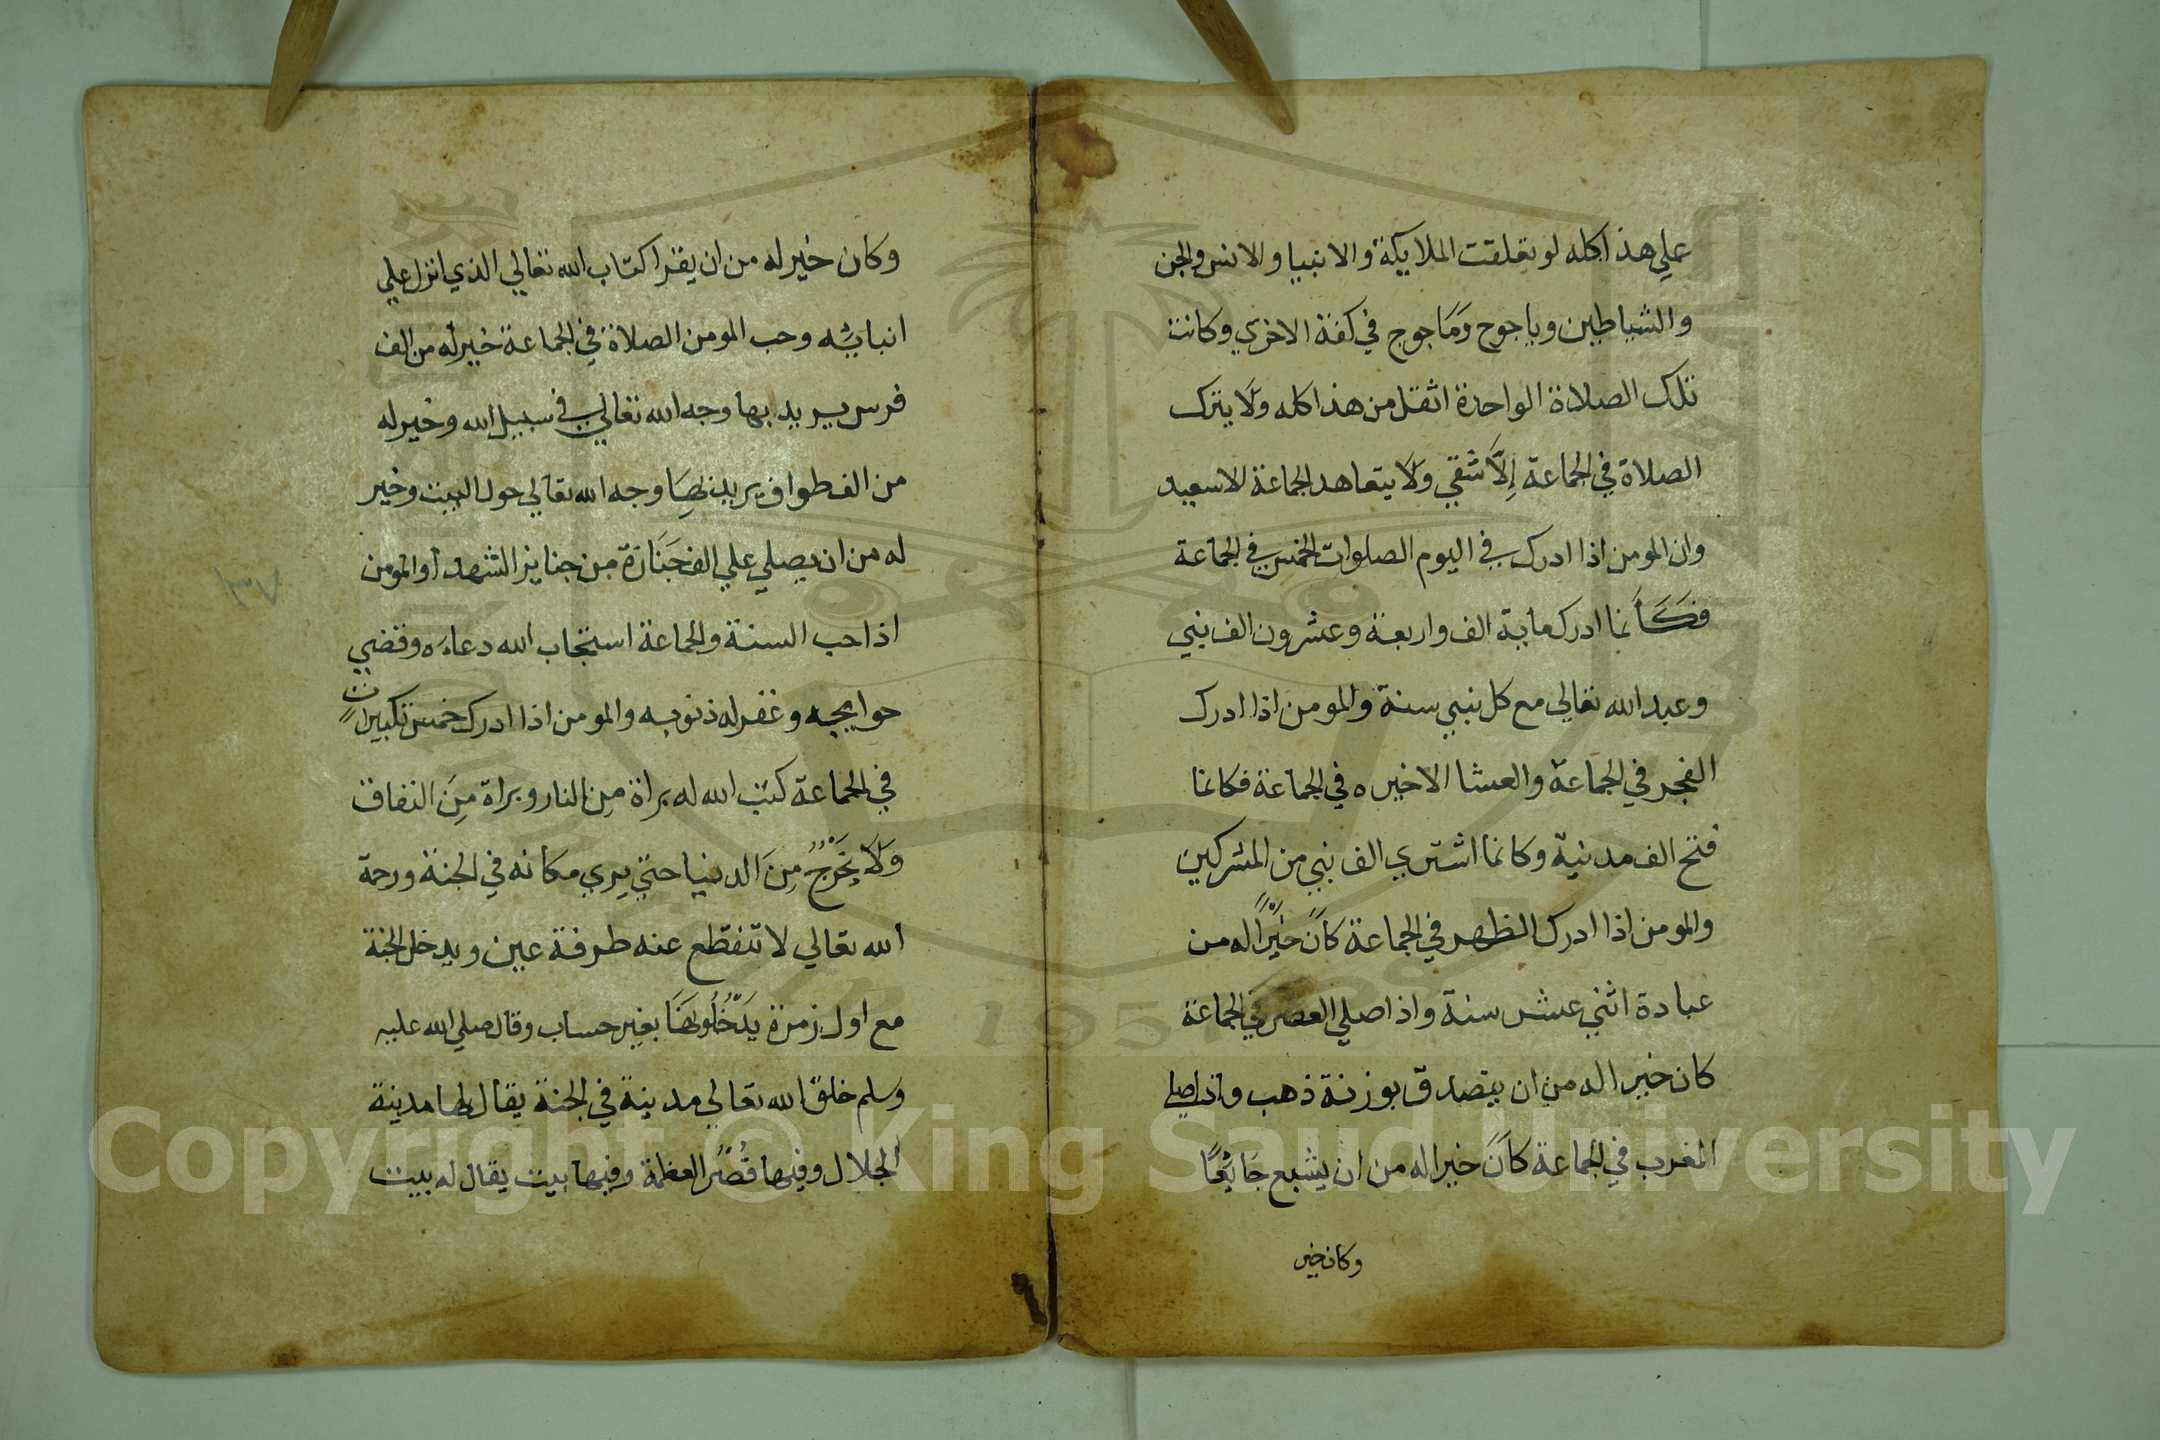 علي هذا كله لو تعلقت الملايكة والانبيا والانس والجن
والشياطين وياجوج وَمَاجوج في كفة الاخري وكانت
تلك الصلاة الواحدة اثقل من هذا كله وَلَا يترك
الصلاة في الجماعة إِلَّا شقي وَلَا يتعاهد الجماعة الا سعيد
وان المومن اذا ادرك في اليوم الصلوات الخمس في الجماعة
فَكَأَنما ادرك ماية الف واربعة وعشرون الف نبي
وعبد الله تعالي مع كل نبي سنة والمومن اذا ادرك
الفجر في الجماعة والعشا الاخيره في الجماعة فكانما
فتح الف مدنية وكانما اشتري الف نبي من المشركين
والمومن اذا ادرك الظهر في الجماعة كَانَ خَيْراً له من
عبادة اثني عشر سنة واذا صلي العصر في الجماعة
كان خيرا له من ان يتصدق بوزنة ذهب واذا صلي
المغرب في الجماعة كَانَ خيرا له من ان يشبع جَايعًا
وكان خير
وكان خير له من ان يقرا كتاب الله تعالي الذي انزل علي
انبيائه وحب المومن الصلاة في الجماعة خير له من الف
فرس يريد بها وجه الله تعالي في سبيل الله وخير له
من الف طواف يريد بِهَا وجه الله تعالي حول البيت وخير
له من ان يصلي علي الف جَنَازَة من جنايز الشهدا والمومن
اذا حب السنة والجماعة استجاب الله دعاءَه وقضي
حوايجه وغفر له ذنوبه والمومن اذا ادرك خمس تكبيرات
في الجماعة كتب الله له براة مِن النار وبراة مِنَ النفاق
وَلَا يَخْرُجُ مِنَ الدنيا حتي يري مكانه في الجنة ورحمة
الله تعالي لا تنقطع عنه طرفة عين ويدخل الجنة
مع اول زمرة يَدْخُلُونَهَا بغير حساب وقال صلي الله عليه
وسلم خلق الله تعالي مدينة في الجنة يقال لها مدينة
الجلال وفيها قُصُر العظمة وفيها بيت يقال له بيت
Copyright © King Saud University